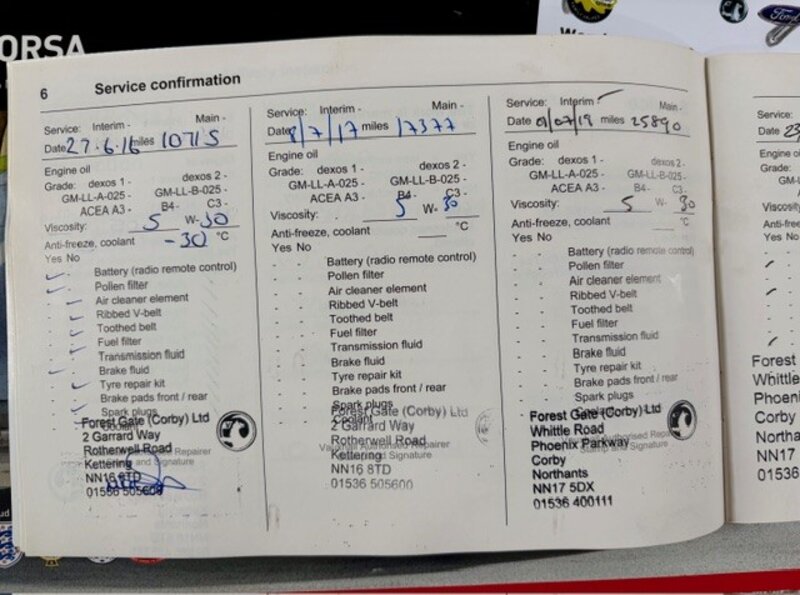 ORSA
Ford
6 Service confirmation
Service: Interim - Main -
Date 27.6.16 miles 10715
Engine oil
Grade: dexos 1 - dexos 2 -
GM-LL-A-025 - GM-LL-B-025 -
ACEA A3 - B4- C3 -
Viscosity: 5 W- 30
Anti-freeze, coolant -30 °C
Yes No
Battery (radio remote control)
Pollen filter
Air cleaner element
Ribbed V-belt
Toothed belt
Fuel filter
Transmission fluid
Brake fluid
Tyre repair kit
Brake pads front / rear
Spark plugs
Forest Gate (Corby) Ltd
2 Garrard Way
Rotherwell Road
Kettering
NN16 8TD
01536 505600
Service: Interim - Main -
Date 8/7/17 miles 17377
Engine oil
Grade: dexos 1 - dexos 2 -
GM-LL-A-025 - GM-LL-B-025 -
ACEA A3 - B4- C3 -
Viscosity: 5 W- 30
Anti-freeze, coolant °C
Yes No
Battery (radio remote control)
Pollen filter
Air cleaner element
Ribbed V-belt
Toothed belt
Fuel filter
Transmission fluid
Brake fluid
Tyre repair kit
Brake pads front / rear
Spark plugs
Coolant
Forest Gate (Corby) Ltd
2 Garrard Way
Rotherwell Road
Kettering
NN16 8TD
01536 505600
Service: Interim - Main -
Date 01/07/19 miles 25890
Engine oil
Grade: dexos 1 - dexos 2 -
GM-LL-A-025 - GM-LL-B-025 -
ACEA A3 - B4- C3 -
Viscosity: 5 W- 30
Anti-freeze, coolant °C
Yes No
Battery (radio remote control)
Pollen filter
Air cleaner element
Ribbed V-belt
Toothed belt
Fuel filter
Transmission fluid
Brake fluid
Tyre repair kit
Brake pads front / rear
Spark plugs
Forest Gate (Corby) Ltd
Whittle Road
Phoenix Parkway
Corby
Northants
NN17 5DX
01536 400111
Service:
Date
Engine oi
Grade:
GM-L
AC
Viscosity
Anti-free
Yes No
Forest
Whittle
Phoeni
Corby
Northa
NN17
01536